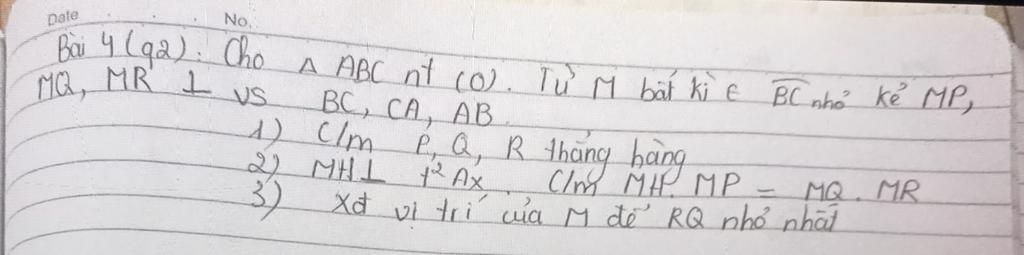 Date No.
Bài 4 (92): Cho Δ ABC nt (O). Từ M bất kì ∈ BC nhỏ kẻ MP,
MQ, MR ⊥ vs BC, CA, AB
1) C/m P, Q, R thẳng hàng
2) MH⊥ t² Ax. C/m MH.MP = MQ.MR
3) Xđ vị trí của M để RQ nhỏ nhất